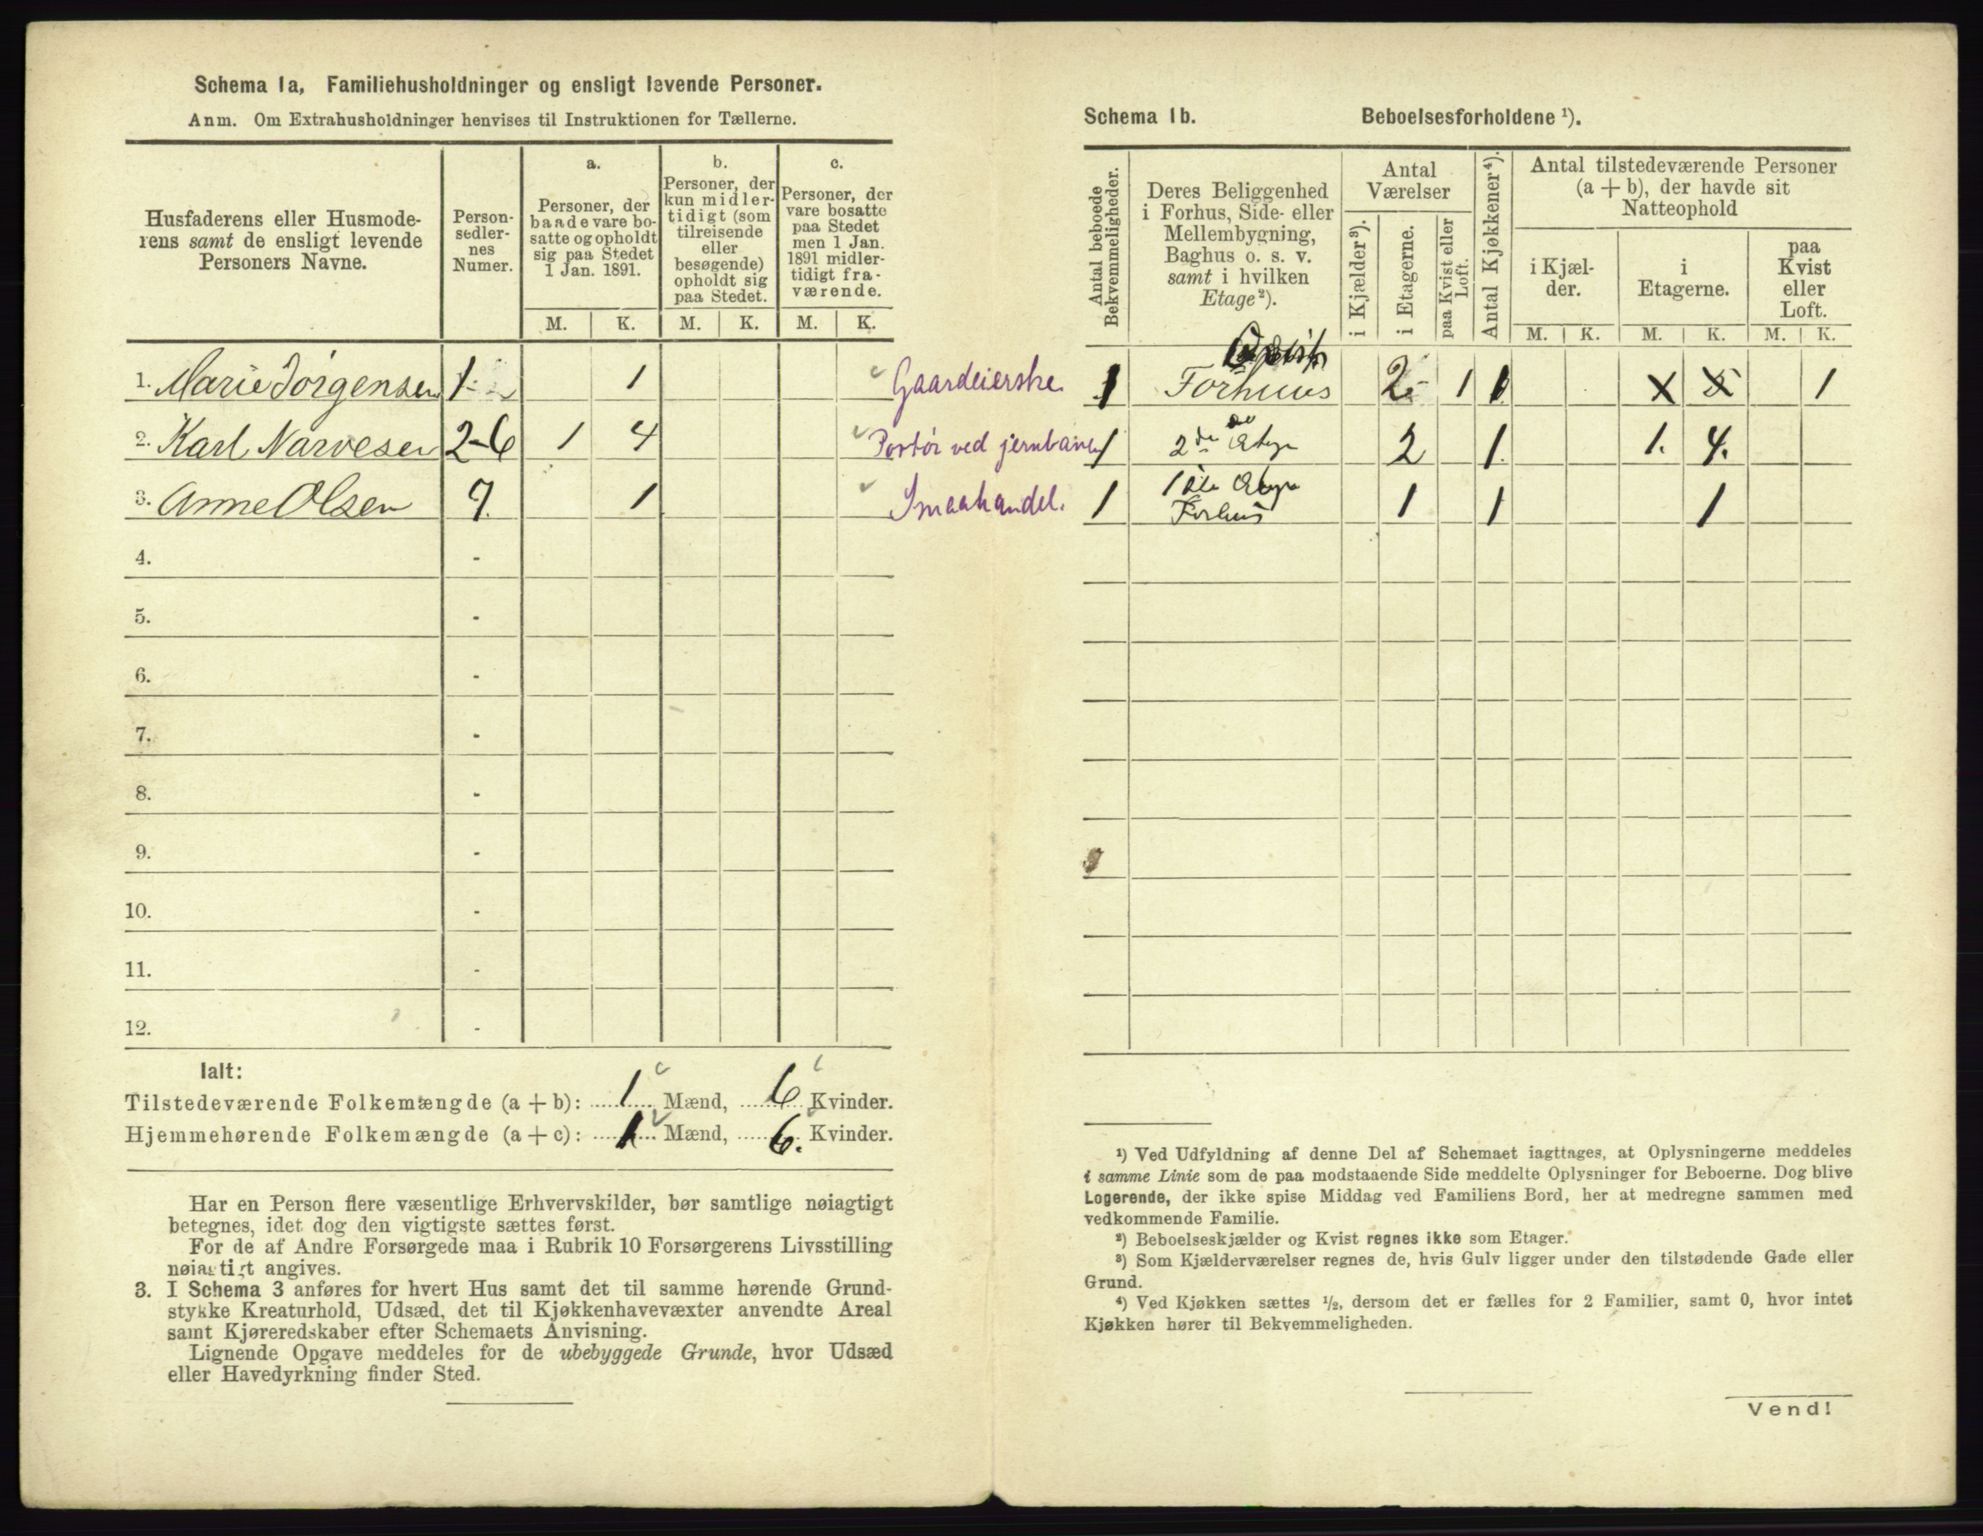 Schema 1a, Familiehusholdninger og ensligt levende Personer.
Anm. Om Extrahusholdninger henvises til Instruktionen for Tællerne.
Husfaderens eller Husmode-
rens samt de ensligt levende
Personers Navne.
Person-
sedler-
nes
Numer.
a.
Personer, der
baade vare bo-
satte og opholdt
sig paa Stedet
1 Jan. 1891.
b.
Personer, der
kun midler-
tidigt (som
tilreisende
eller
besøgende)
opholdt sig
paa Stedet.
c.
Personer, der
vare bosatte
paa Stedet
men 1 Jan.
1891 midler-
tidigt fra-
værende.
M. K. M. K. M. K.
1. Marie Jørgensen 1 1 Gaardeierske
2. Karl Narvesen 2-6 1 4 Portør ved jernbanen
3. Anne Olsen 7. 1 Smaahandel.
4. -
5. -
6. -
7. -
8. -
9. -
10. -
11. -
12. -
Ialt:
Tilstedeværende Folkemængde (a + b): 1 Mænd, 6 Kvinder.
Hjemmehørende Folkemængde (a + c): 1 Mænd, 6. Kvinder.
Har en Person flere væsentlige Erhvervskilder, bør samtlige nøiagtigt
betegnes, idet dog den vigtigste sættes først.
For de af Andre Forsørgede maa i Rubrik 10 Forsørgerens Livsstilling
nøiagtigt angives.
3. I Schema 3 anføres for hvert Hus samt det til samme hørende Grund-
stykke Kreaturhold, Udsæd, det til Kjøkkenhavevæxter anvendte Areal
samt Kjøreredskaber efter Schemaets Anvisning.
Lignende Opgave meddeles for de ubebyggede Grunde, hvor Udsæd
eller Havedyrkning finder Sted.
Schema 1b. Beboelsesforholdene ¹).
Antal beboede
Bekvemmeligheder.
Deres Beliggenhed
i Forhus, Side- eller
Mellembygning,
Baghus o. s. v.
samt i hvilken
Etage ²).
Antal
Værelser
i Kjælder ³).
i Etagerne.
paa Kvist eller
Loft.
Antal Kjøkkener ⁴).
Antal tilstedeværende Personer
(a + b), der havde sit
Natteophold
i Kjæl-
der.
i
Etagerne.
paa
Kvist
eller
Loft.
M. K. M. K. M. K.
1 Forhuus 2 1 1 1
1 2de Etage 2 1. 1. 4.
1 1ste Etage
Forhus 1 1 1
¹) Ved Udfyldning af denne Del af Schemaet iagttages, at Oplysningerne meddeles
i samme Linie som de paa modstaaende Side meddelte Oplysninger for Beboerne. Dog blive
Logerende, der ikke spise Middag ved Familiens Bord, her at medregne sammen med
vedkommende Familie.
²) Beboelseskjælder og Kvist regnes ikke som Etager.
³) Som Kjælderværelser regnes de, hvis Gulv ligger under den tilstødende Gade eller
Grund.
⁴) Ved Kjøkken sættes ½, dersom det er fælles for 2 Familier, samt 0, hvor intet
Kjøkken hører til Bekvemmeligheden.
Vend!